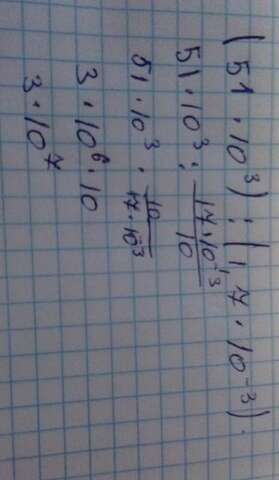 (51 · 10³) : (1,7 · 10⁻³).
51 · 10³ : 17 · 10⁻³ / 10
51 · 10³ · 10 / 17 · 10⁻³
3 · 10⁶ · 10
3 · 10⁷